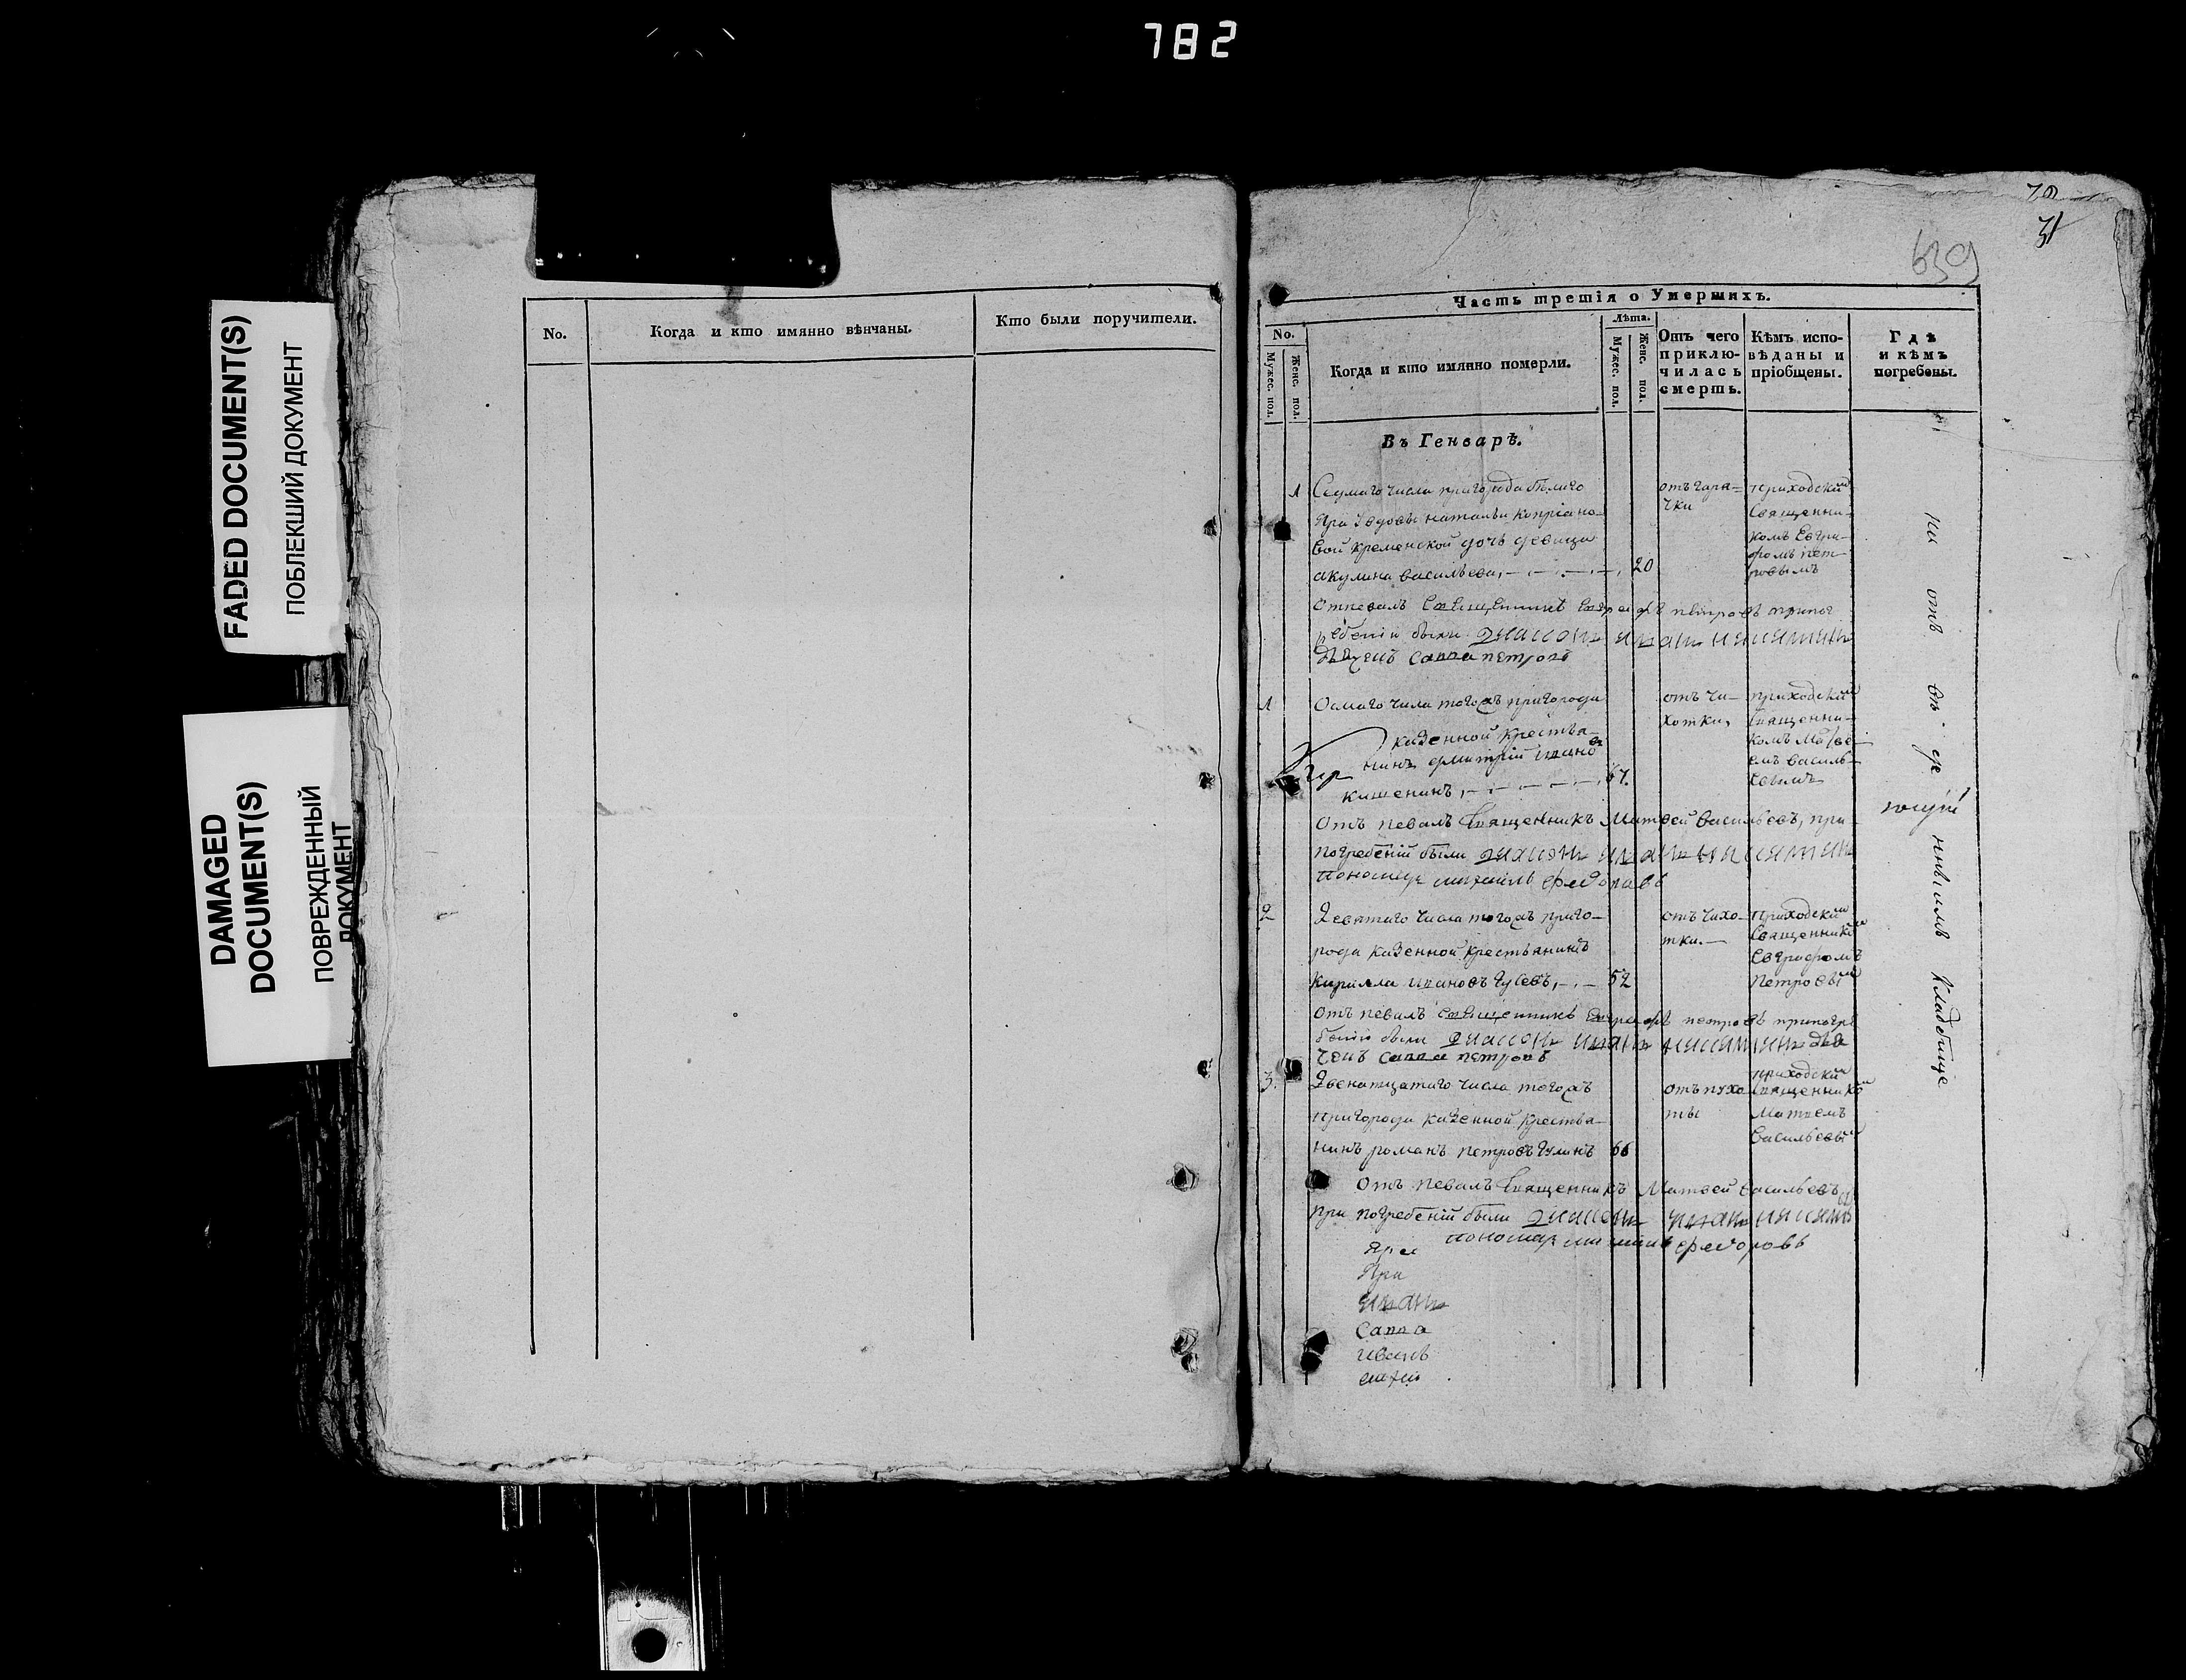 782
FADED DOCUMENT(S)
ПОБЛЕКШИЙ ДОКУМЕНТ
DAMAGED
DOCUMENT(S)
ПОВРЕЖДЕННЫЙ
ДОКУМЕНТ
No.
Когда и кто имянно вѣнчаны.
Кто были поручители.
639
Часть третія о Умершихъ.
No.
Мужес. пол.
Женс. пол.
Когда и кто имянно померли.
Лѣта.
Мужес. пол.
Женс. пол.
Отъ чего
приклю-
чилась
смерть.
Кѣмъ испо-
вѣданы и
пріобщены.
Гдѣ
и кѣмъ
погребены.
Въ Генварѣ.
1
Седмаго числа пригорода бѣлаго
Яра вдовы натальи купріано-
вой кременской дочь девица
акулина васильева, 20
отъ горя-
чки
приходский
Священни-
комъ Евгра-
фомъ пет-
ровымъ
Отпевалъ Священникъ Евграфъ петровъ припог
ребеніи были диаконъ иванъ никитинъ
дьяченъ савва петровъ
1
Осмаго числа тогожъ пригорода
казенной крестья
нинъ дмитрій ивановъ
67.
отъ чи-
хотки,
приходский
священни-
комъ Матве-
емъ василь-
евымъ
Отъ певалъ Священникъ Матвей васильевъ, при
погребеній были диаконъ иванъ никитинъ
пономарь михаилъ федоровъ
2
Девятаго числа тогожъ приго-
рода казенной крестьянинъ
кирилла ивановъ гусевъ, 52
отъ чихо-
тки.
Приходский
Священникомъ
Евграфомъ
Петровым
Отъ певалъ священникъ Евграфъ петровъ припогре
беніи были диаконъ иванъ никитинъ дья
ченъ савва петровъ
3.
Двенатцатаго числа тогожъ
пригорода казенной крестья-
нинъ романъ петровъ 66
приходский
священником
Матвемъ
Васильевым
Отъ певалъ Священникъ Матвей васильевъ
при погребеній были диаконъ иванъ никитинъ
пономарь михаилъ федоровъ
При
иванъ
Савва
иванъ
на отъ ве де нномъ кладбище